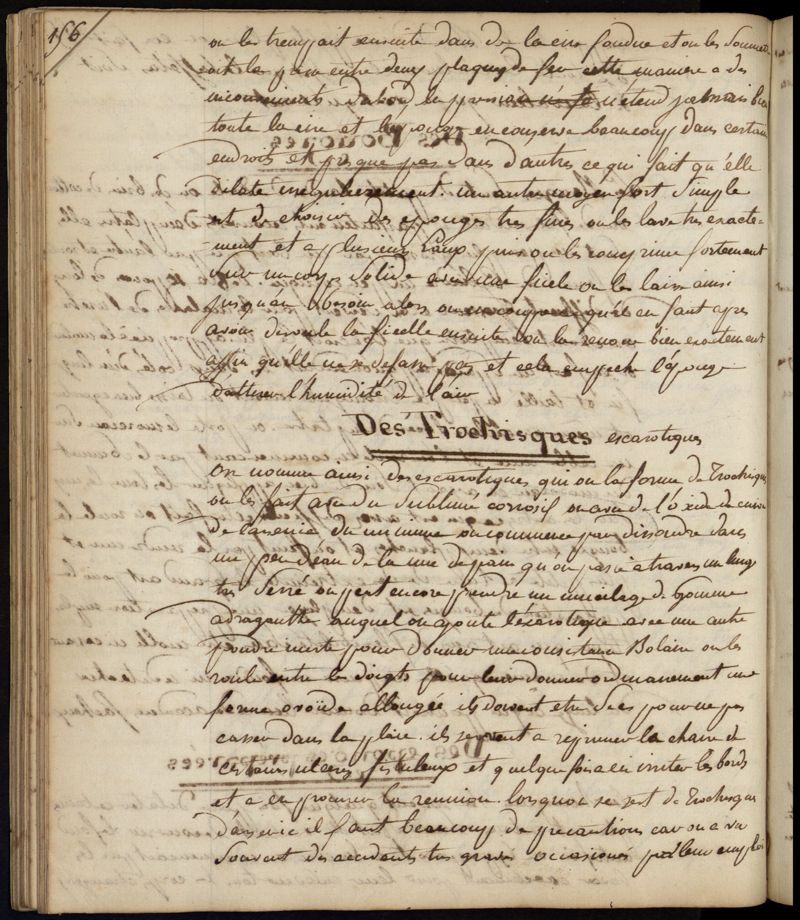 156
on les trempait ensuite dans de la cire fondue et on les soumet
ait les passer entre deux plaques de fer cette maniere a des
inconvenients d'abord la pression n'etend jamais bien
toute la cire et l'eponge en conserve beaucoup dans certain
endroits et presque pas dans d'autres ce qui fait qu'elle
dilate irregulierement. un autre moyen fort simple
est de choisir des eponges tres fines on les lave tres exacte-
-ment et a plusieurs Eaux puis on les comprime fortement
sur un corps solide avec une ficele on les laisse ainsi
jusqu'au besoin alors on en coupe ce qu'il en faut apres
avoir deroulé la ficelle ensuite on la renoue bien exactement
affin qu'elle ne se defasse pas et cela empeche l'éponge
d'attirer l'humidité de l'air
Des Trochisques escarotiques
On nomme ainsi des escarotiques qui ont la forme de Trochisques
on les fait avec du Sublimé corrosif ou avec de l'oxide de cuivre
de l'arsenic du minium on commence par dissoudre dans
un peu d'eau de la mie de pain qu'on passe a travers un linge
tres serré on peut encore prendre un mucilage de Gomme
adragante auquel on ajoute l'éscarotique avec une autre
poudre inerte pour donner une consistance Bolaire on les
roule entre les doigts pour leur donner ordinairement une
forme ovoïde allongée ils doivent etre secs pour ne pas
casser dans la plaie. ils servent a reprimer la chaire de
certains ulceres fistuleux et quelque fois a en irriter les bords
et a en procurer la reunion. lorsqu'on se sert de Trochisques
d'arsenic il faut beaucoup de precautions car on a vu
souvent des accidents tres graves occasionés par leur emploi